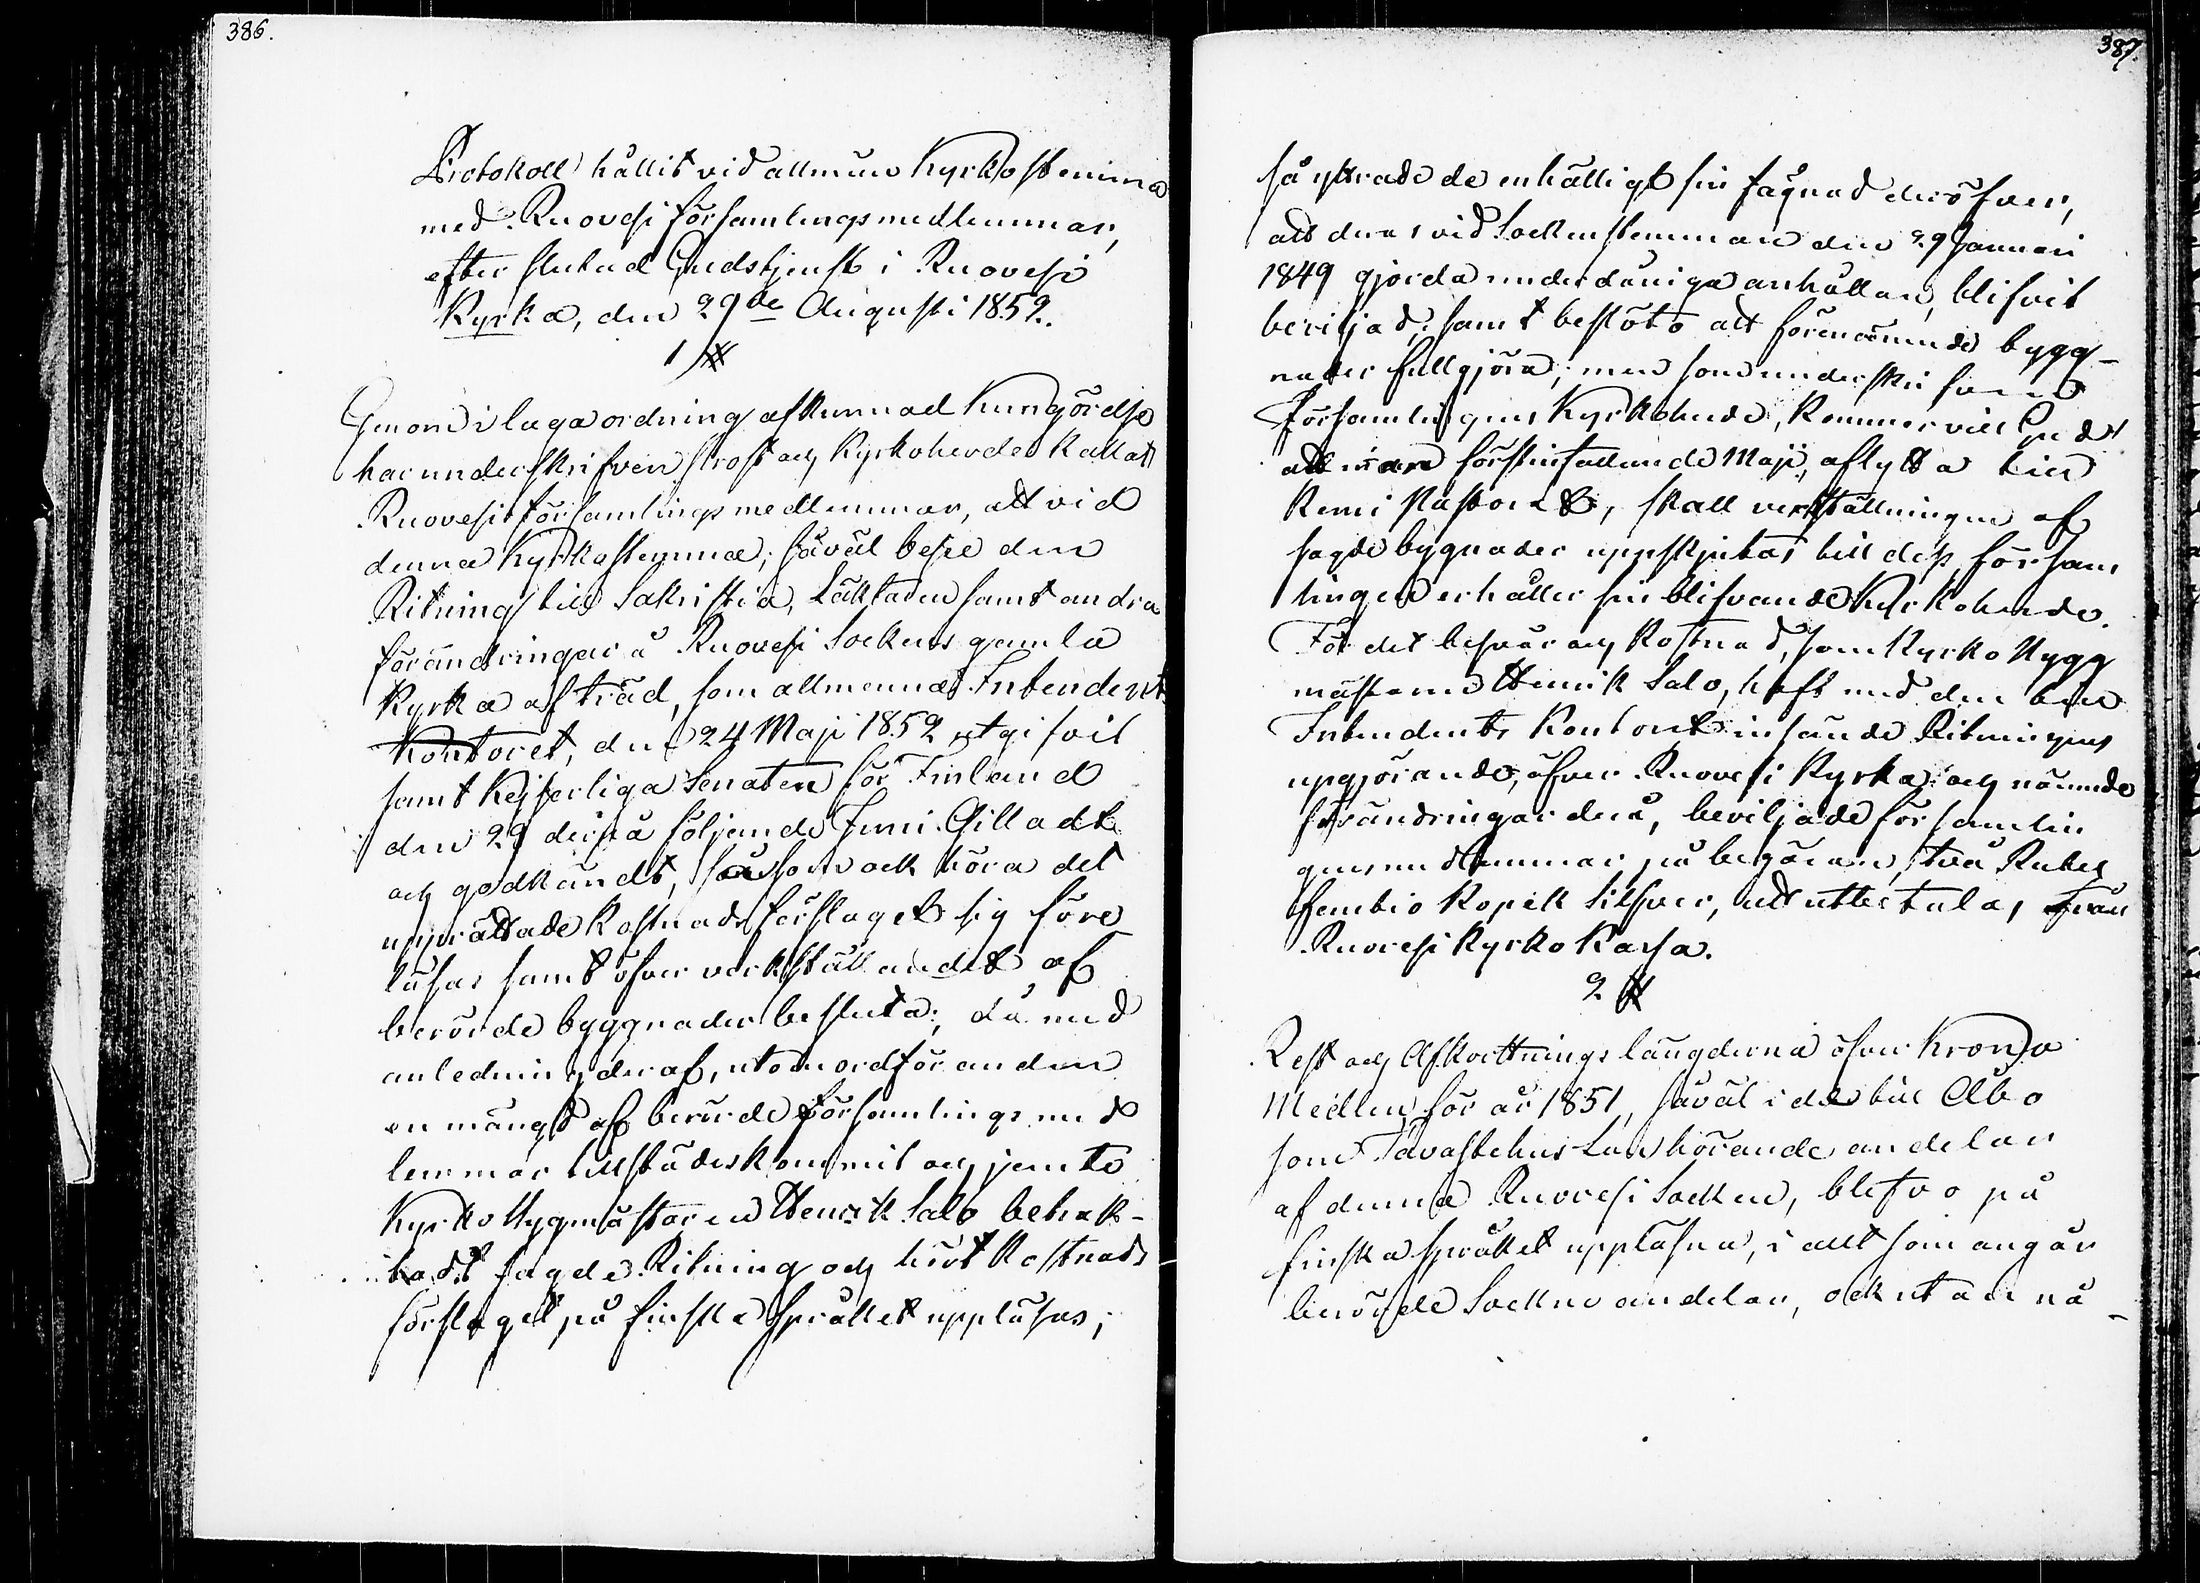 386.
Protokoll hållit vid allmän Kyrkostämma
med Ruovesi församlingsmedlemmar,
efter slutad Gudstjenst i Ruovesi
Kyrka, den 29de Augusti 1852.
1 §
Genom i laga ordning afkunnad Kungörelse
har underskrifven Prost och Kyrkoherde kallat
Ruovesi församlings medlemmar, att vid
denna Kyrkostemma, såväl bese den
Ritning till Sakristia, Läktaren samt andra
förändringar å Ruovesi Sockens gamla
Kyrka af träd, som allmenna Intendents
Kontoret, den 24 Maji 1852 utgifvit
samt Kejserliga Senaten för Finland
den 29 derpå följande Juni Gilladt
och godkändt, såsom ock höra det
upprättade Kostnads förslaget sig före
läsas samt öfver verkställandet af
berörde byggnader besluta; då med
anledning deraf, utom ordföranden
en mängd af berörde församlings med
lemmar tillstädeskommit och jemte
Kyrko Byggmästaren Henrik Salo betrak-
tadt sagde Ritning och hört Kostnads
förslaget på finska språket uppläsas;
387.
så yttrade de enhälligt sin fägnad deröfver,
att deras vid Sockenstemman den 29 Januari
1849 gjorda underdåniga anhållan, blifvit
beviljad, samt beslöto att förenämnde bygg-
nader fullgöra; men som underskrifvard
Församlingens Kyrkoherde, kommer vill Gud
att innan förstinfallande Maji, aflytta till
Kemi Pastorat, skall verkställningen af
sagde bygnader uppskjutas till dess försam
lingen erhåller sin blifvande Kyrkoherde.
För det besvär och Kostnad, som Kyrko Bygg
mästaren Henrik Salo, haft med den till
Intendents Kontoret insände Ritningens
upgjörande, öfver Ruovesi Kyrka och nämnde
förändringar derå, beviljade församlin
gens medlemmar på begäran, två Rubel
femtio Kopek Silfver, att utbetalas från
Ruovesi Kyrko Kassa.
2 §
Rest och Afkortnings längderna öfver Krono
Medlen för år 1851, såväl i de till Åbo
som Tavastehus Län hörande andelar
af denna Ruovesi Socken, blefvo på
finska språket upplästa, i allt som angår
berörde Sockne andelar, och utan nå-